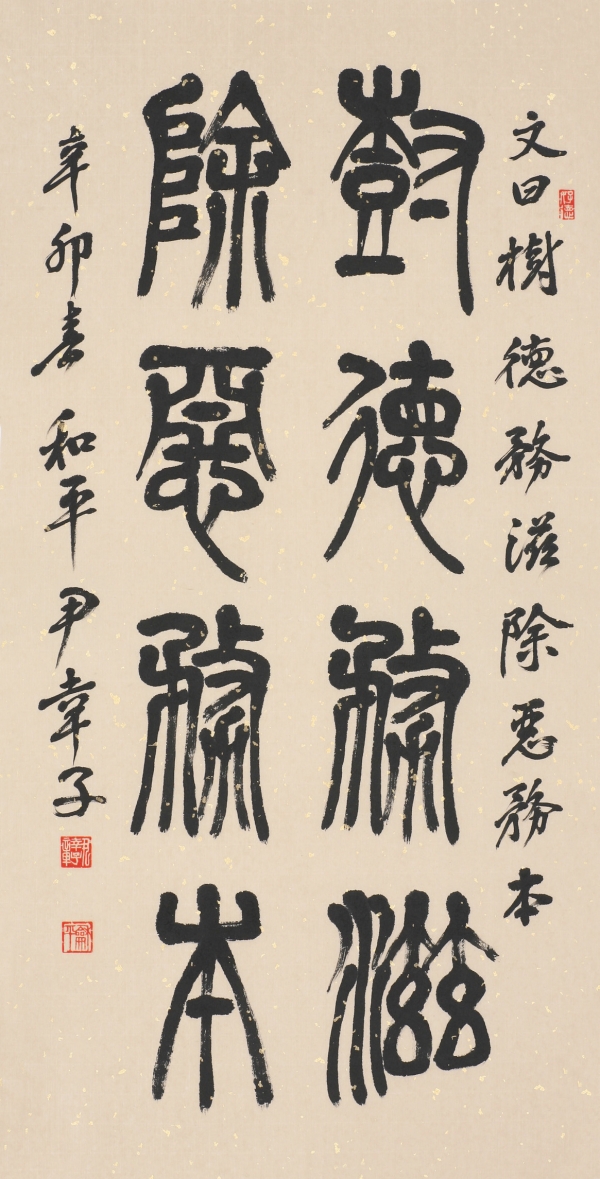 文曰樹德務滋除惡務本
樹德務滋
除惡務本
辛卯春和平尹子